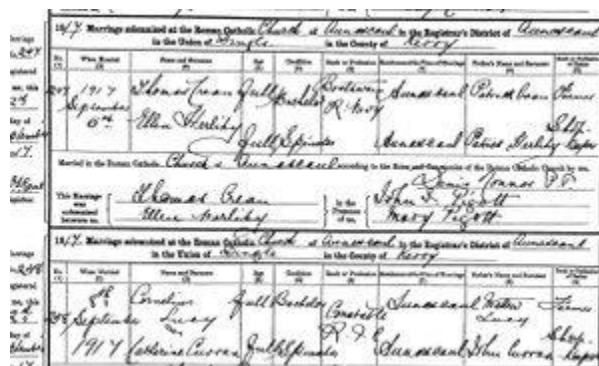 1917. Marriage solemnized at the Roman Catholic Church of Annascaul in the Registrar's District of Annascaul
in the Union of Dingle in the County of Kerry
No. When Married Name and Surname Age Condition Rank or Profession Residence at the Time of Marriage Father's Name and Surname Rank or Profession of Father
1917 Thomas Crean full Bachelor Boatswain Annascaul Patrick Crean Farmer
September R. Navy
6th Ellen Herlihy Shop
full Spinster Annascaul Patrick Herlihy Keeper
Married in the Roman Catholic Church of Annascaul according to the Rites and Ceremonies of the Roman Catholic Church by me,
P.P.
This Marriage was solemnized between us, Thomas Crean
Ellen Herlihy
in the Presence of us, John Pigott
Mary Pigott
1917. Marriage solemnized at the Roman Catholic Church of Annascaul in the Registrar's District of Annascaul
in the Union of Dingle in the County of Kerry
No. When Married Name and Surname Age Condition Rank or Profession Residence at the Time of Marriage Father's Name and Surname Rank or Profession of Father
8th Cornelius full Bachelor Constable Annascaul Farmer
September Lucy R. I. C. Lucy
1917 Catherine Curran full Spinster Annascaul John Curran Shop
Keeper